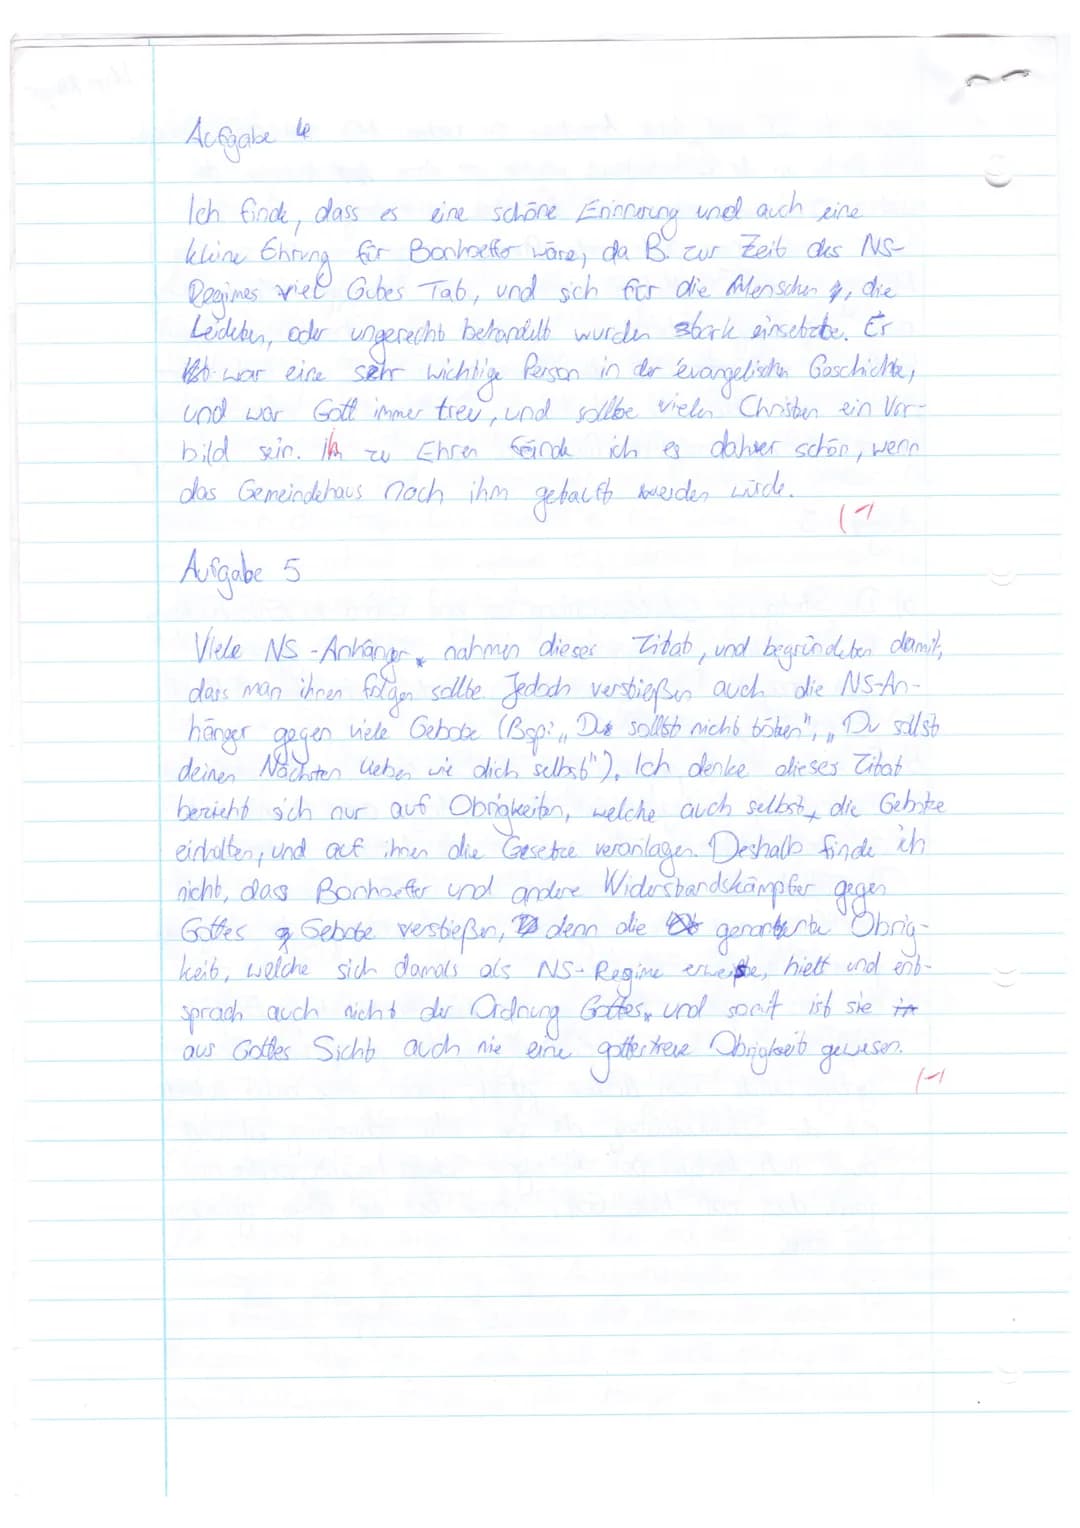 Aufgabe 4
Ich finde, dass es eine schöne Erinnerung und auch eine
kleine Ehrung für Bonhoeffer wäre, da B. zur Zeit des NS-
Regimes viel Gutes Tat, und sich für die Menschen, die
Leideten, oder ungerecht behandelt wurden stark einsetzte. Er
war eine sehr wichtige Person in der evangelischen Geschichte,
und war Gott immer treu, und sollte vielen Christen ein Vor-
bild sein. Ihm zu Ehren fände ich es daher schön, wenn
das Gemeindehaus nach ihm getauft werden würde.
(-1
Aufgabe 5
Viele NS-Anhänger nahmen dieses Zitat, und begründeten damit,
dass man ihnen folgen sollte. Jedoch verstießen auch die NS-An-
hänger gegen viele Gebote (Bsp: „Du sollst nicht töten", „Du sollst
deinen Nächsten lieben wie dich selbst"). Ich denke dieses Zitat
bezieht sich nur auf Obrigkeiten, welche auch selbst die Gebote
einhalten, und auf ihnen die Gesetze veranlagen. Deshalb finde ich
nicht, dass Bonhoeffer und andere Widerstandskämpfer gegen
Gottes Gebote verstießen, denn die genannte Obrig-
keit, welche sich damals als NS-Regime erweiste, hielt und ent-
sprach auch nicht der Ordnung Gottes, und somit ist sie
aus Gottes Sicht auch nie eine gottestreue Obrigkeit gewesen.
(-1